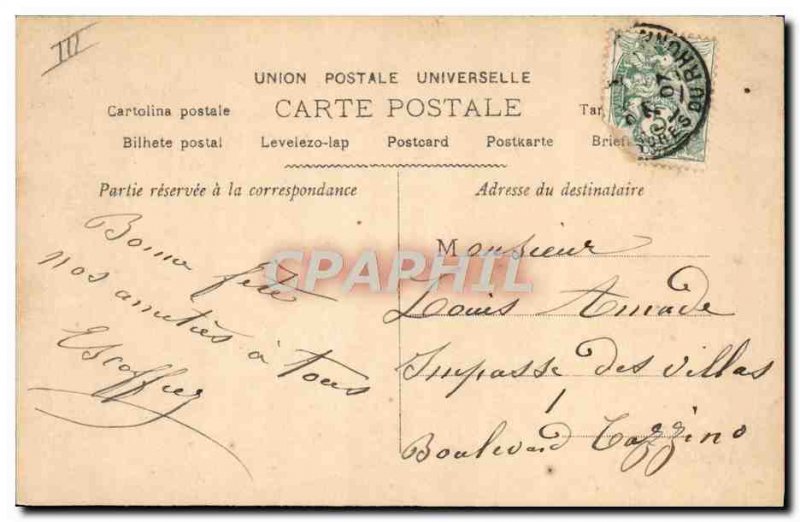 III
UNION POSTALE UNIVERSELLE
CARTE POSTALE
Cartolina postale
Bilhete postal Levelezo-lap Postcard Postkarte
Partie réservée à la correspondance
Adresse du destinataire
Bonne fête
nos amitiés à tous
Escoffier
Monsieur
Louis Amade
Impasse des Villas
1
Boulevard Cazzino
CPAPHIL
07
DU RHONE